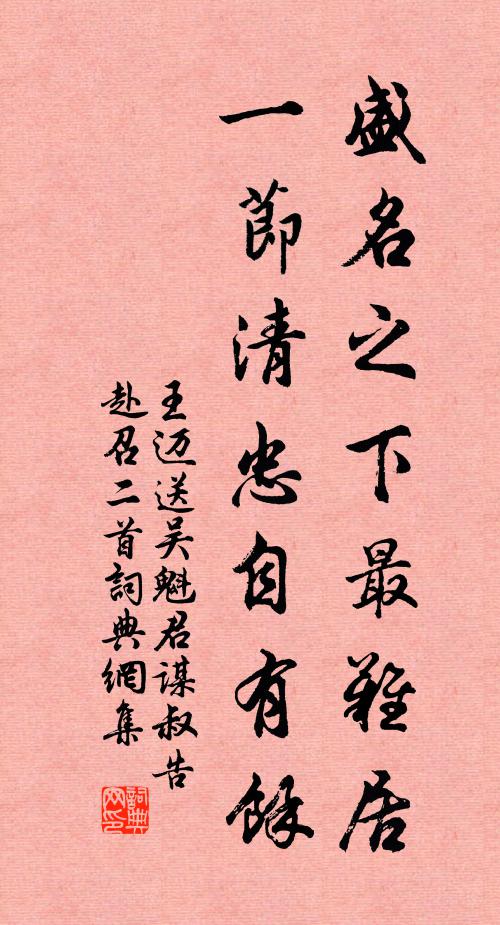 盛名之下最難居
一節清忠自有餘
王迈送吴魁君謀叔告
赴召二首詞典網集
詞典網印